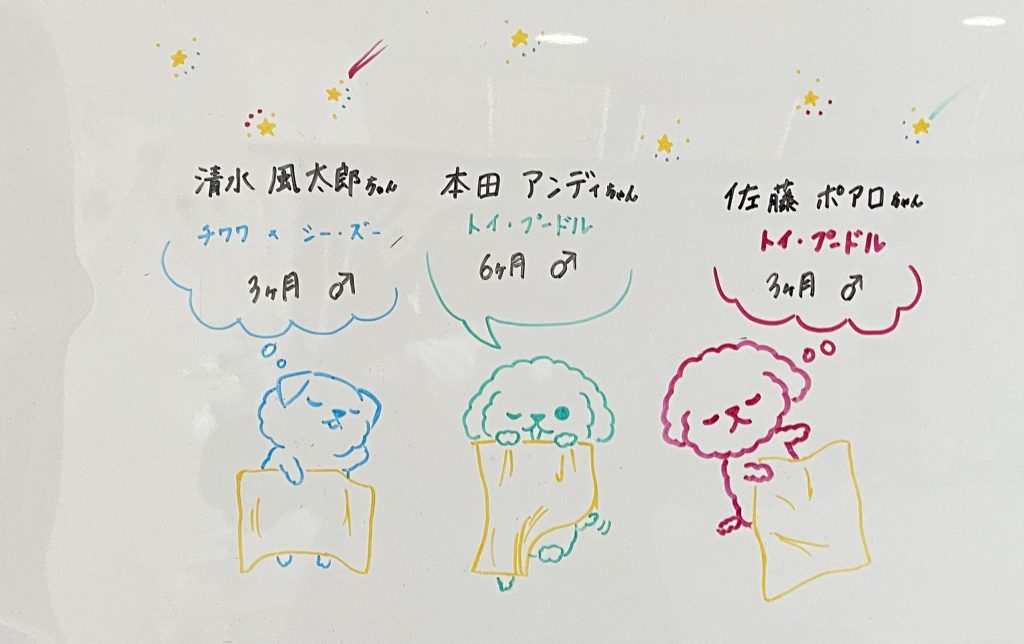 清水 風太郎ちゃん
チワワ × シー・ズー
3ヶ月 ♂
本田 アンディちゃん
トイ・プードル
6ヶ月 ♂
佐藤 ポアロちゃん
トイ・プードル
3ヶ月 ♂